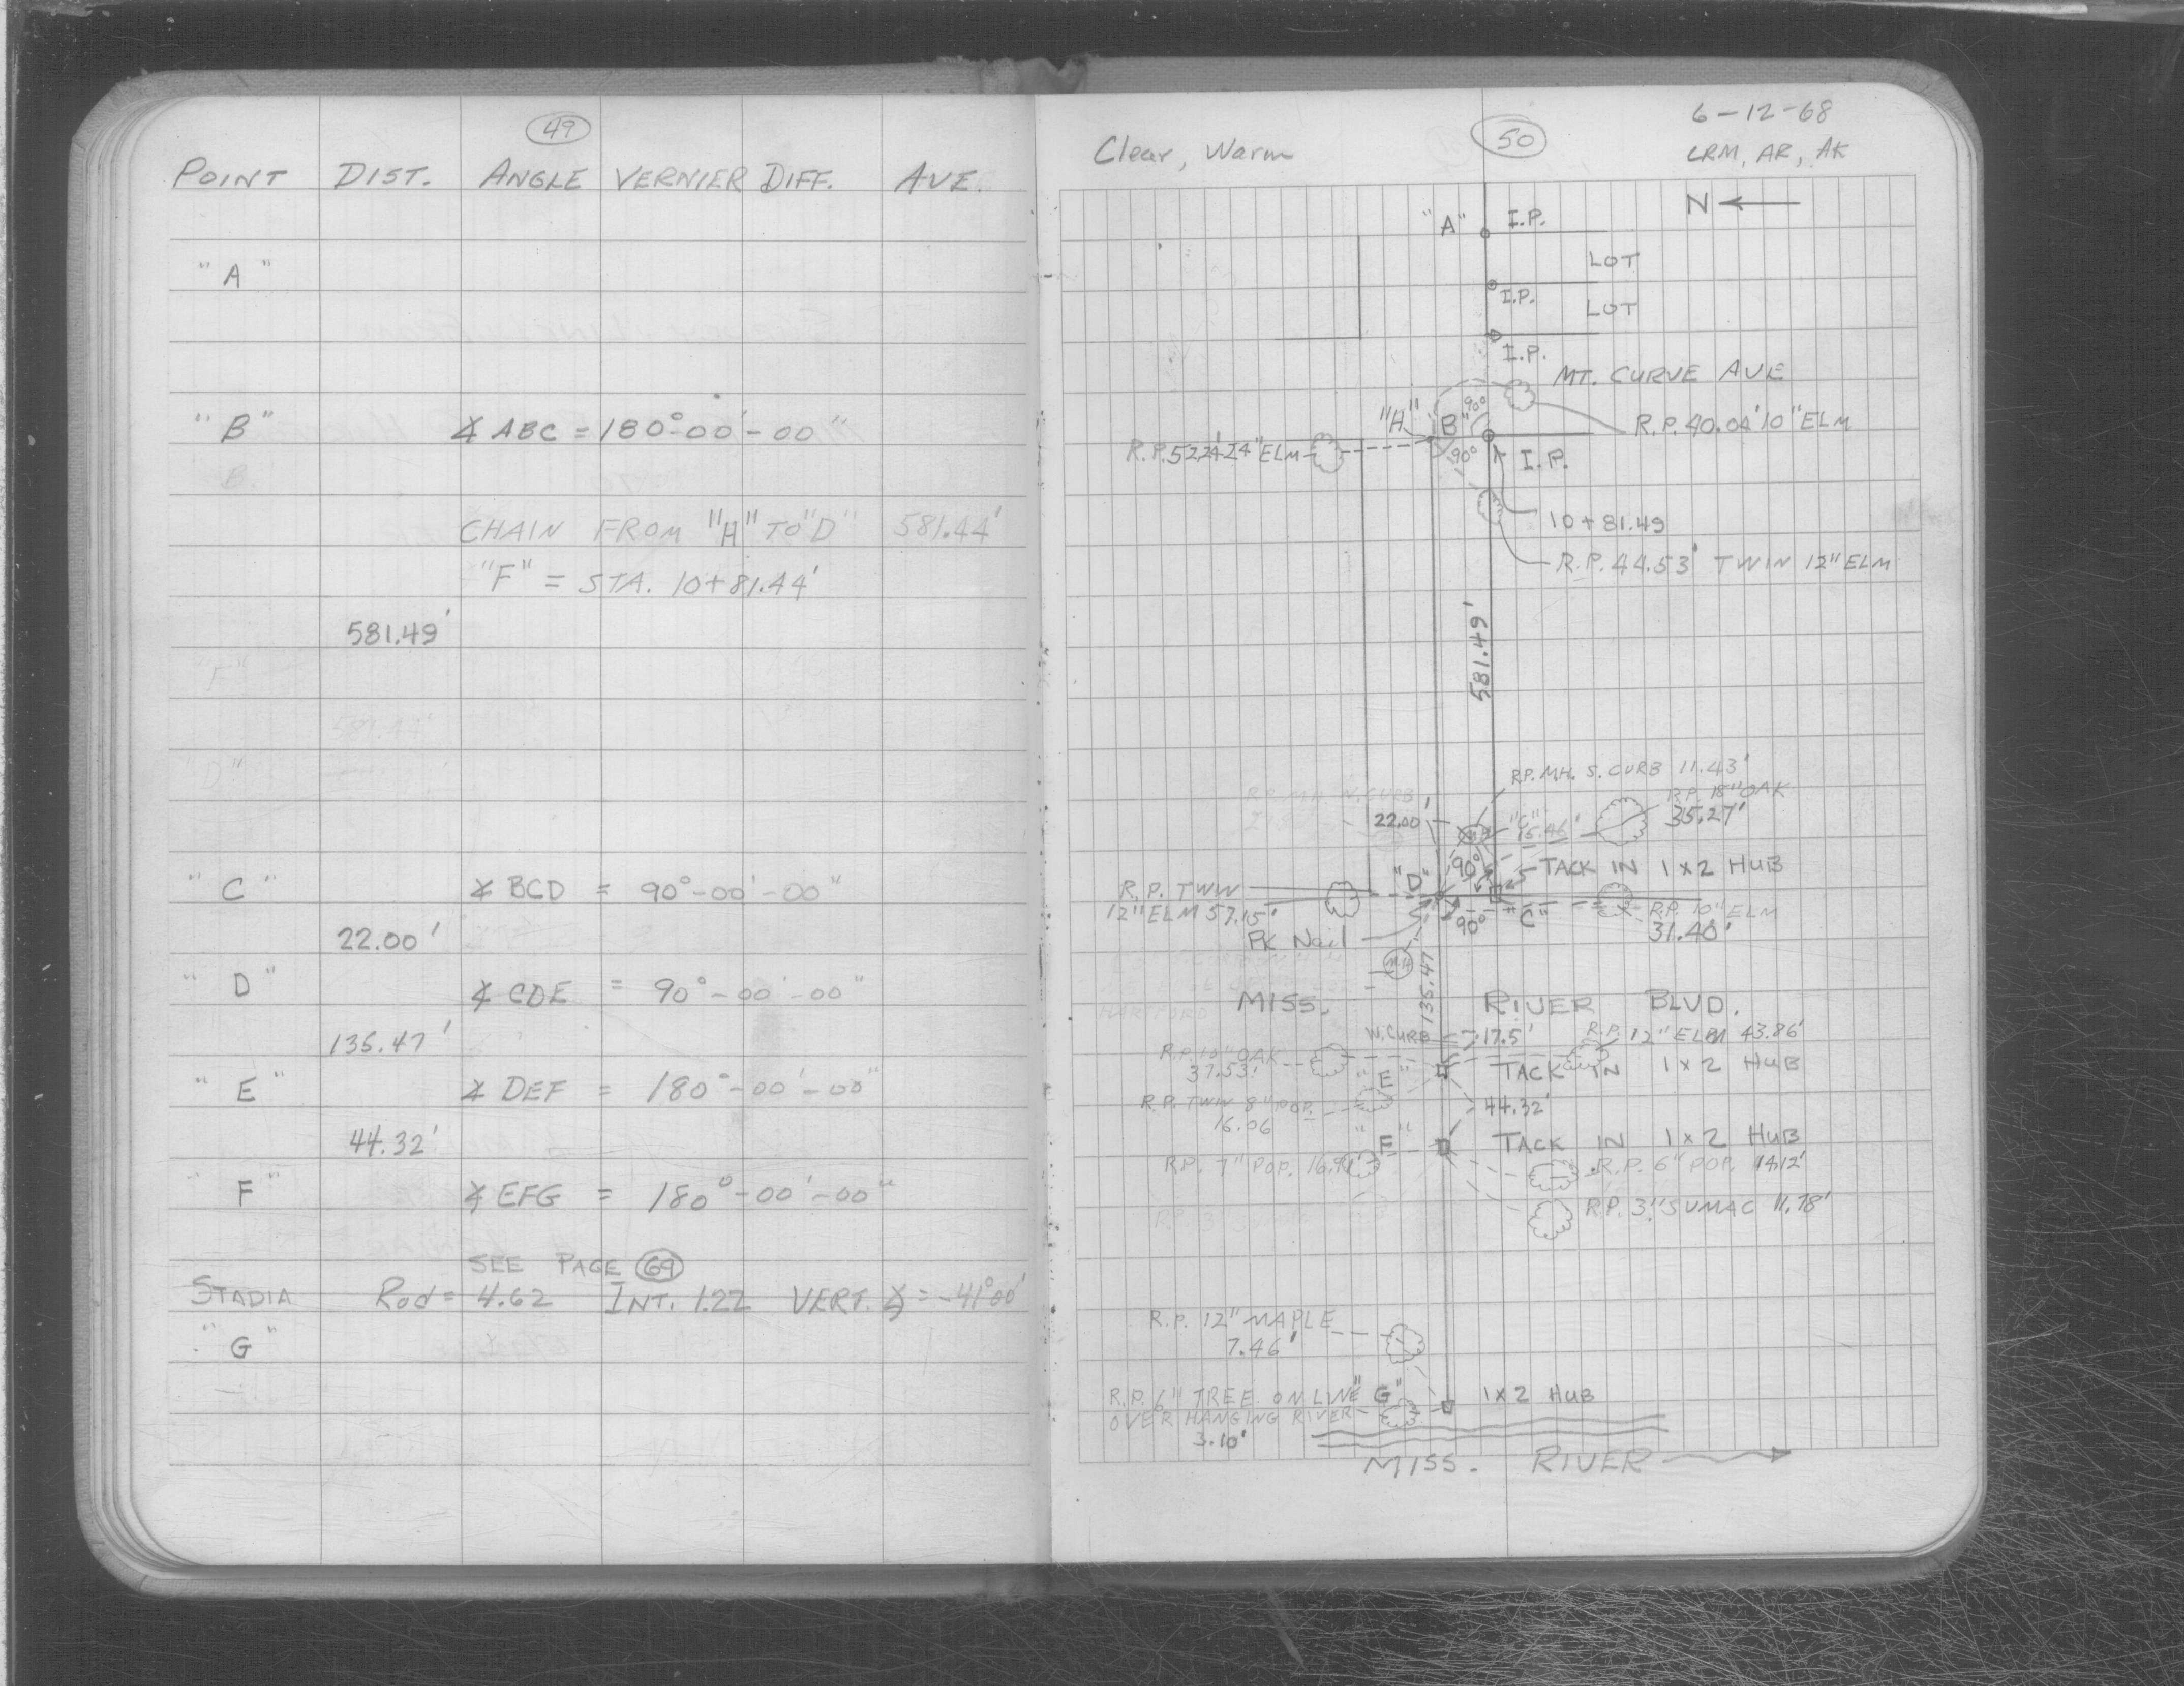 49
POINT DIST. ANGLE VERNIER DIFF. AVE.
"A"
"B" ∡ ABC = 180°-00'-00"
B.
CHAIN FROM "H" TO "D" 581.44'
"F" = STA. 10+81.44'
581.49'
"F"
581.44'
"D"
"C" ∡ BCD = 90°-00'-00"
22.00'
"D" ∡ CDE = 90°-00'-00"
135.47'
"E" ∡ DEF = 180°-00'-00"
44.32'
"F" ∡ EFG = 180°-00'-00"
SEE PAGE 69
STADIA Rod = 4.62 INT. 1.22 VERT. ∡ = -41°00'
"G"
50
6-12-68
Clear, Warm
LRM, AR, AK
N
"A" I.P.
LOT
I.P.
LOT
I.P.
MT. CURVE AVE
90°
"H" "B" R.P. 40.04' 10" ELM
R.P. 52.24' 24" ELM
90° I.P.
10+81.49
R.P. 44.53' TWIN 12" ELM
581.49'
R.P. M.H. S. CURB 11.43'
R.P. M.H. N. CURB R.P. 18" OAK
22.00' "C" 15.46' 35.27'
M.H.
90° TACK IN 1x2 HUB
"D"
R.P. TWIN
12" ELM 57.15'
90° "C" R.P. 10" ELM
PK Nail 31.40'
M.H.
135.47
HARTFORD
MISS. RIVER BLVD.
W. CURB 17.5' R.P. 12" ELM 43.86'
R.P. 10" OAK
37.53'
"E" TACK IN 1x2 HUB
R.P. TWIN 8" POP.
16.06
44.32'
"F" TACK IN 1x2 HUB
R.P. 7" POP. R.P. 6" POP. 14.12'
R.P. 3" SUMAC 11.78'
R.P. 3" SUMAC
R.P. 12" MAPLE
7.46'
R.P. 6" TREE ON LINE "G" 1x2 HUB
OVER HANGING RIVER
3.10'
MISS. RIVER